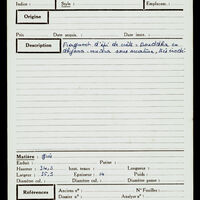 Indice : Style : Emplacem. :
Origine
Prix : Date acquis. : Date inscr. :
Description Fragment d'épi de : bouddha en
dhyana-mudra sous
Matière : grès
Enduit : Patine :
Hauteur : 24,5 haut. tenon : Longueur :
Largeur : 25,5 Epaisseur : 14 Poids :
Diamètre col. : Diamètre panse :
Références Ancien n° : N° Fouilles :
Dossier n° : Analyse n° :